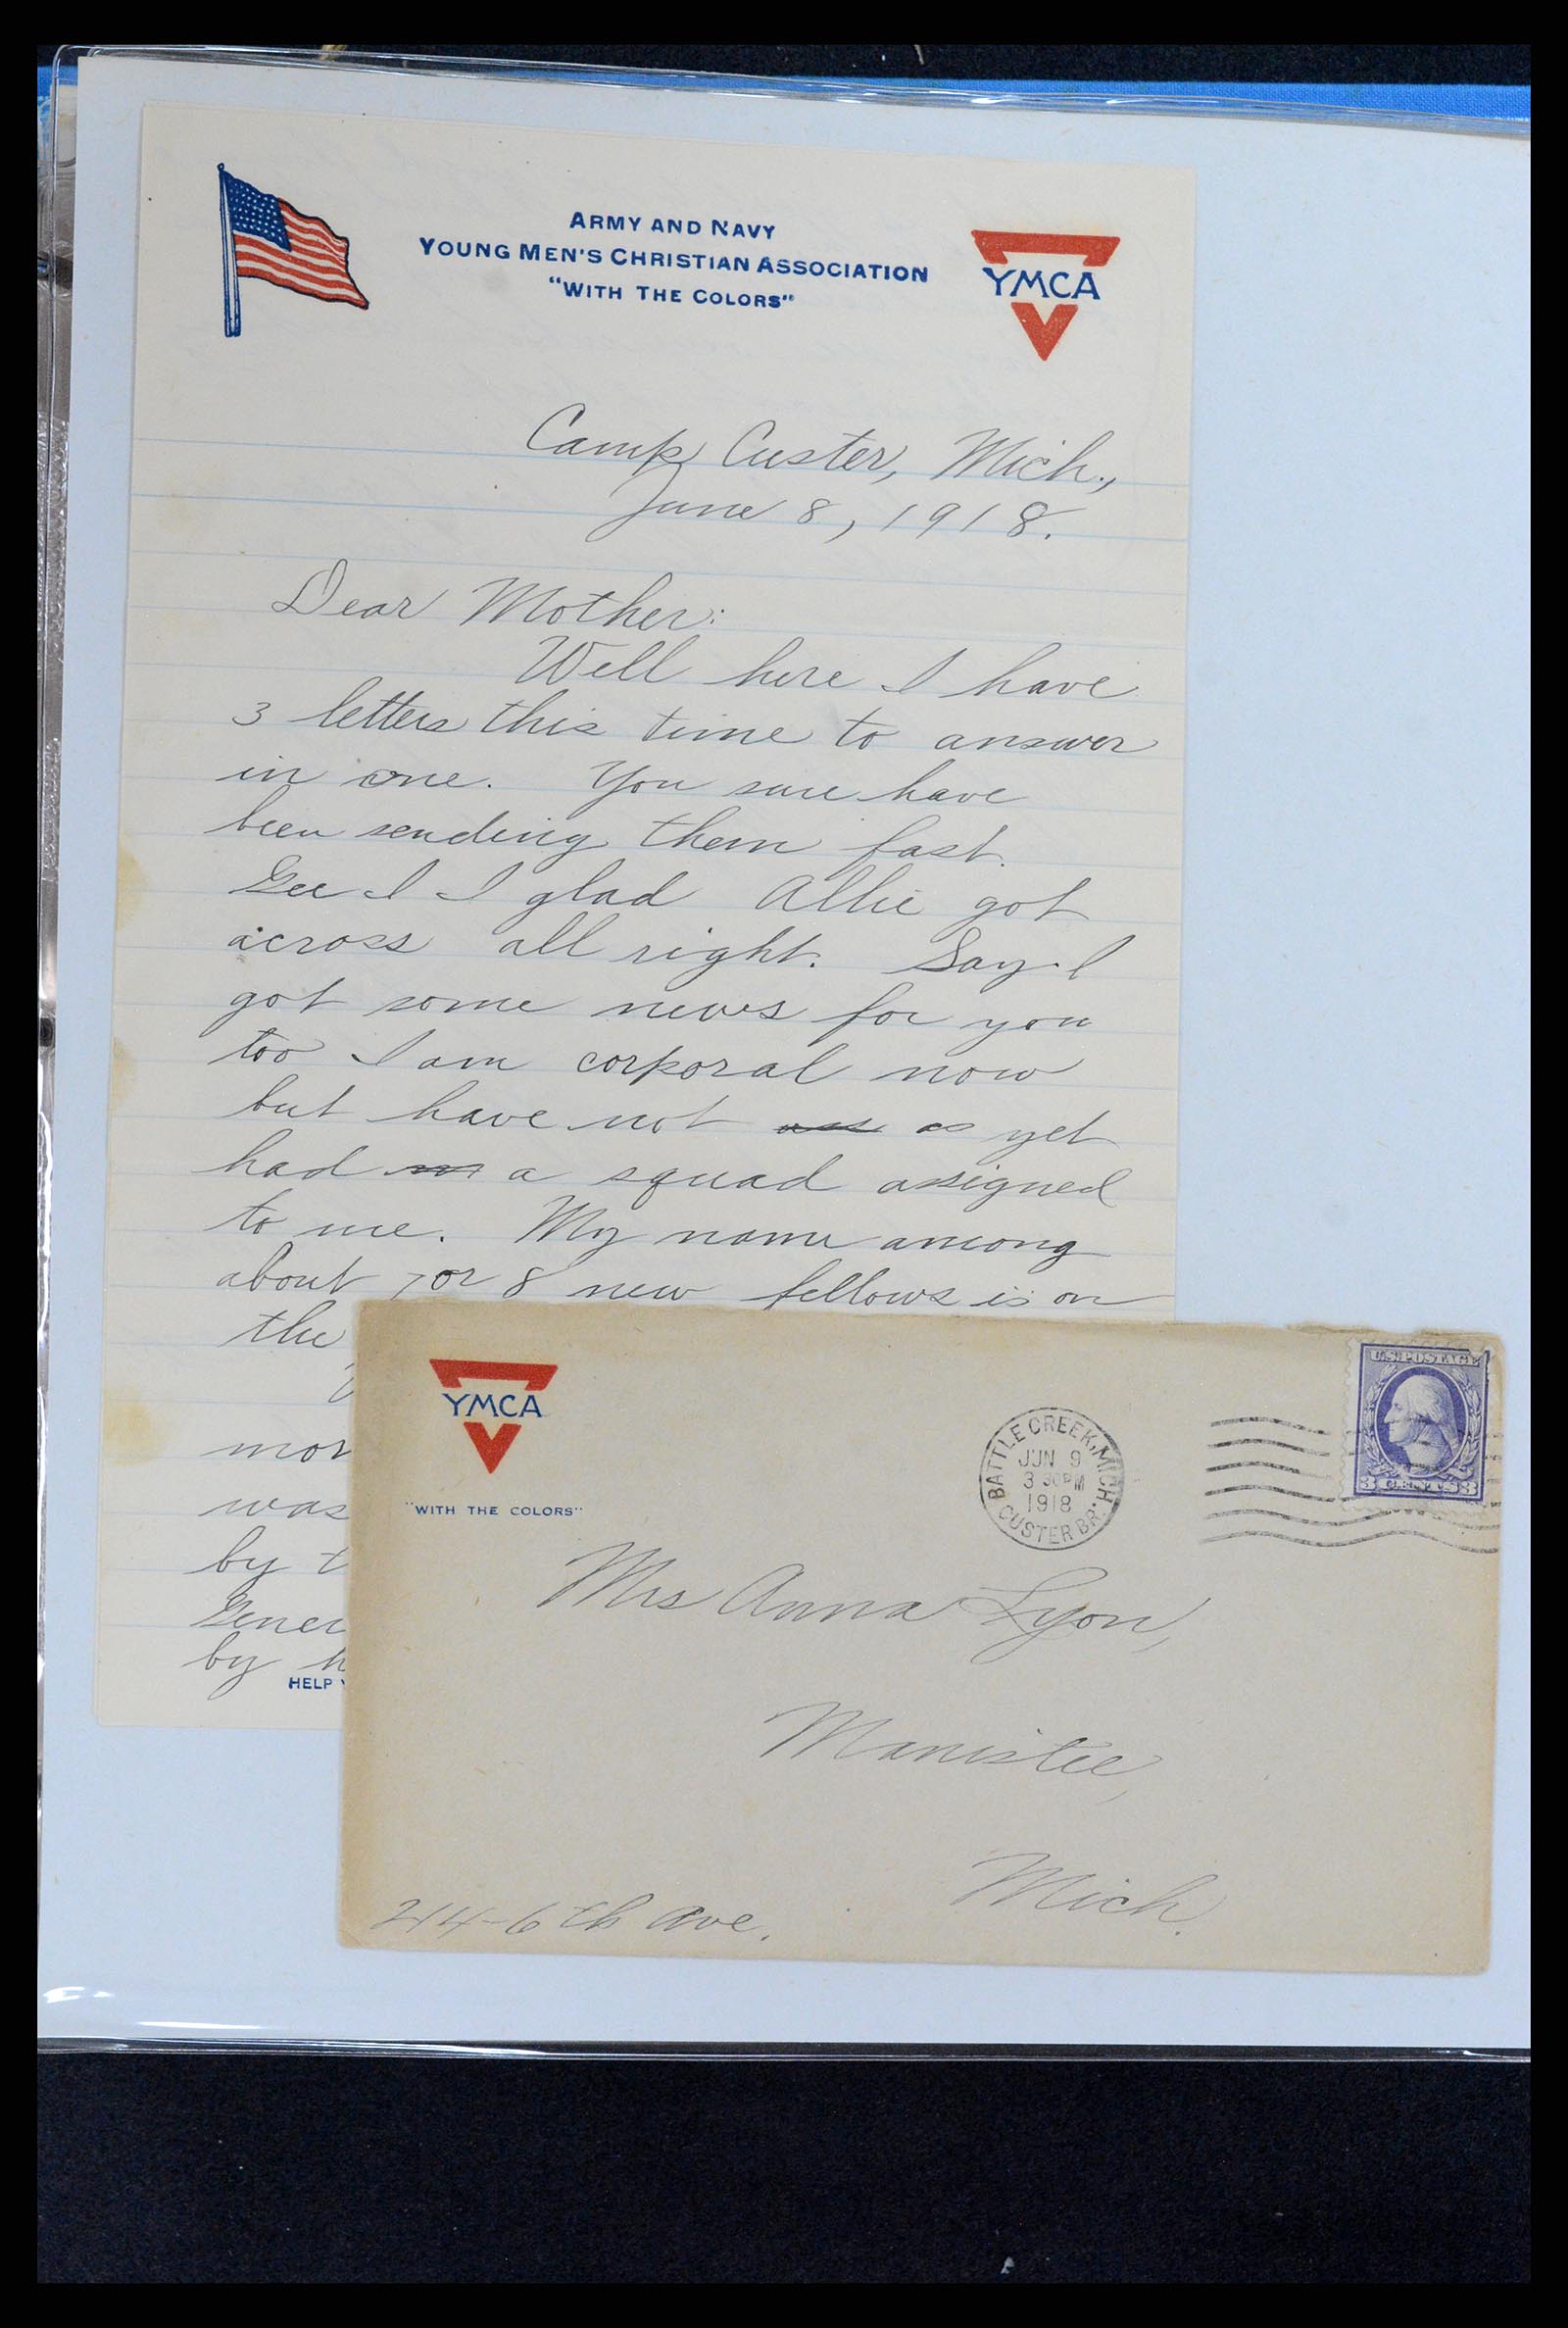 ARMY AND NAVY
YOUNG MEN'S CHRISTIAN ASSOCIATION
"WITH THE COLORS"
YMCA
Camp Custer, Mich.,
June 8, 1918.
Dear Mother:
Well here I have
3 letters this time to answer
in one. You sure have
been sending them fast.
Gee I I glad Allie got
across all right. Say I
got some news for you
too I am corporal now
but have not as yet
had a squad assigned
to me. My name among
about 7 or 8 new fellows is on
the
mor
was
by t
Gener
by h
HELP
YMCA
"WITH THE COLORS"
BATTLE CREEK, MICH.
JUN 9
3 30 PM
1918
CUSTER BR.
U.S. POSTAGE
3 CENTS 3
Mrs Anna Lyon,
Manistee,
Mich.
244-6th Ave.